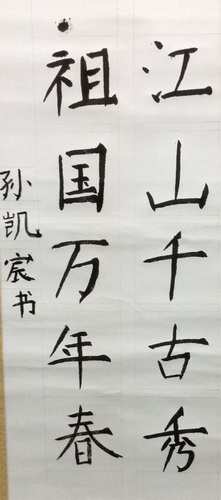 江山千古秀
祖国万年春
孙凯宸书